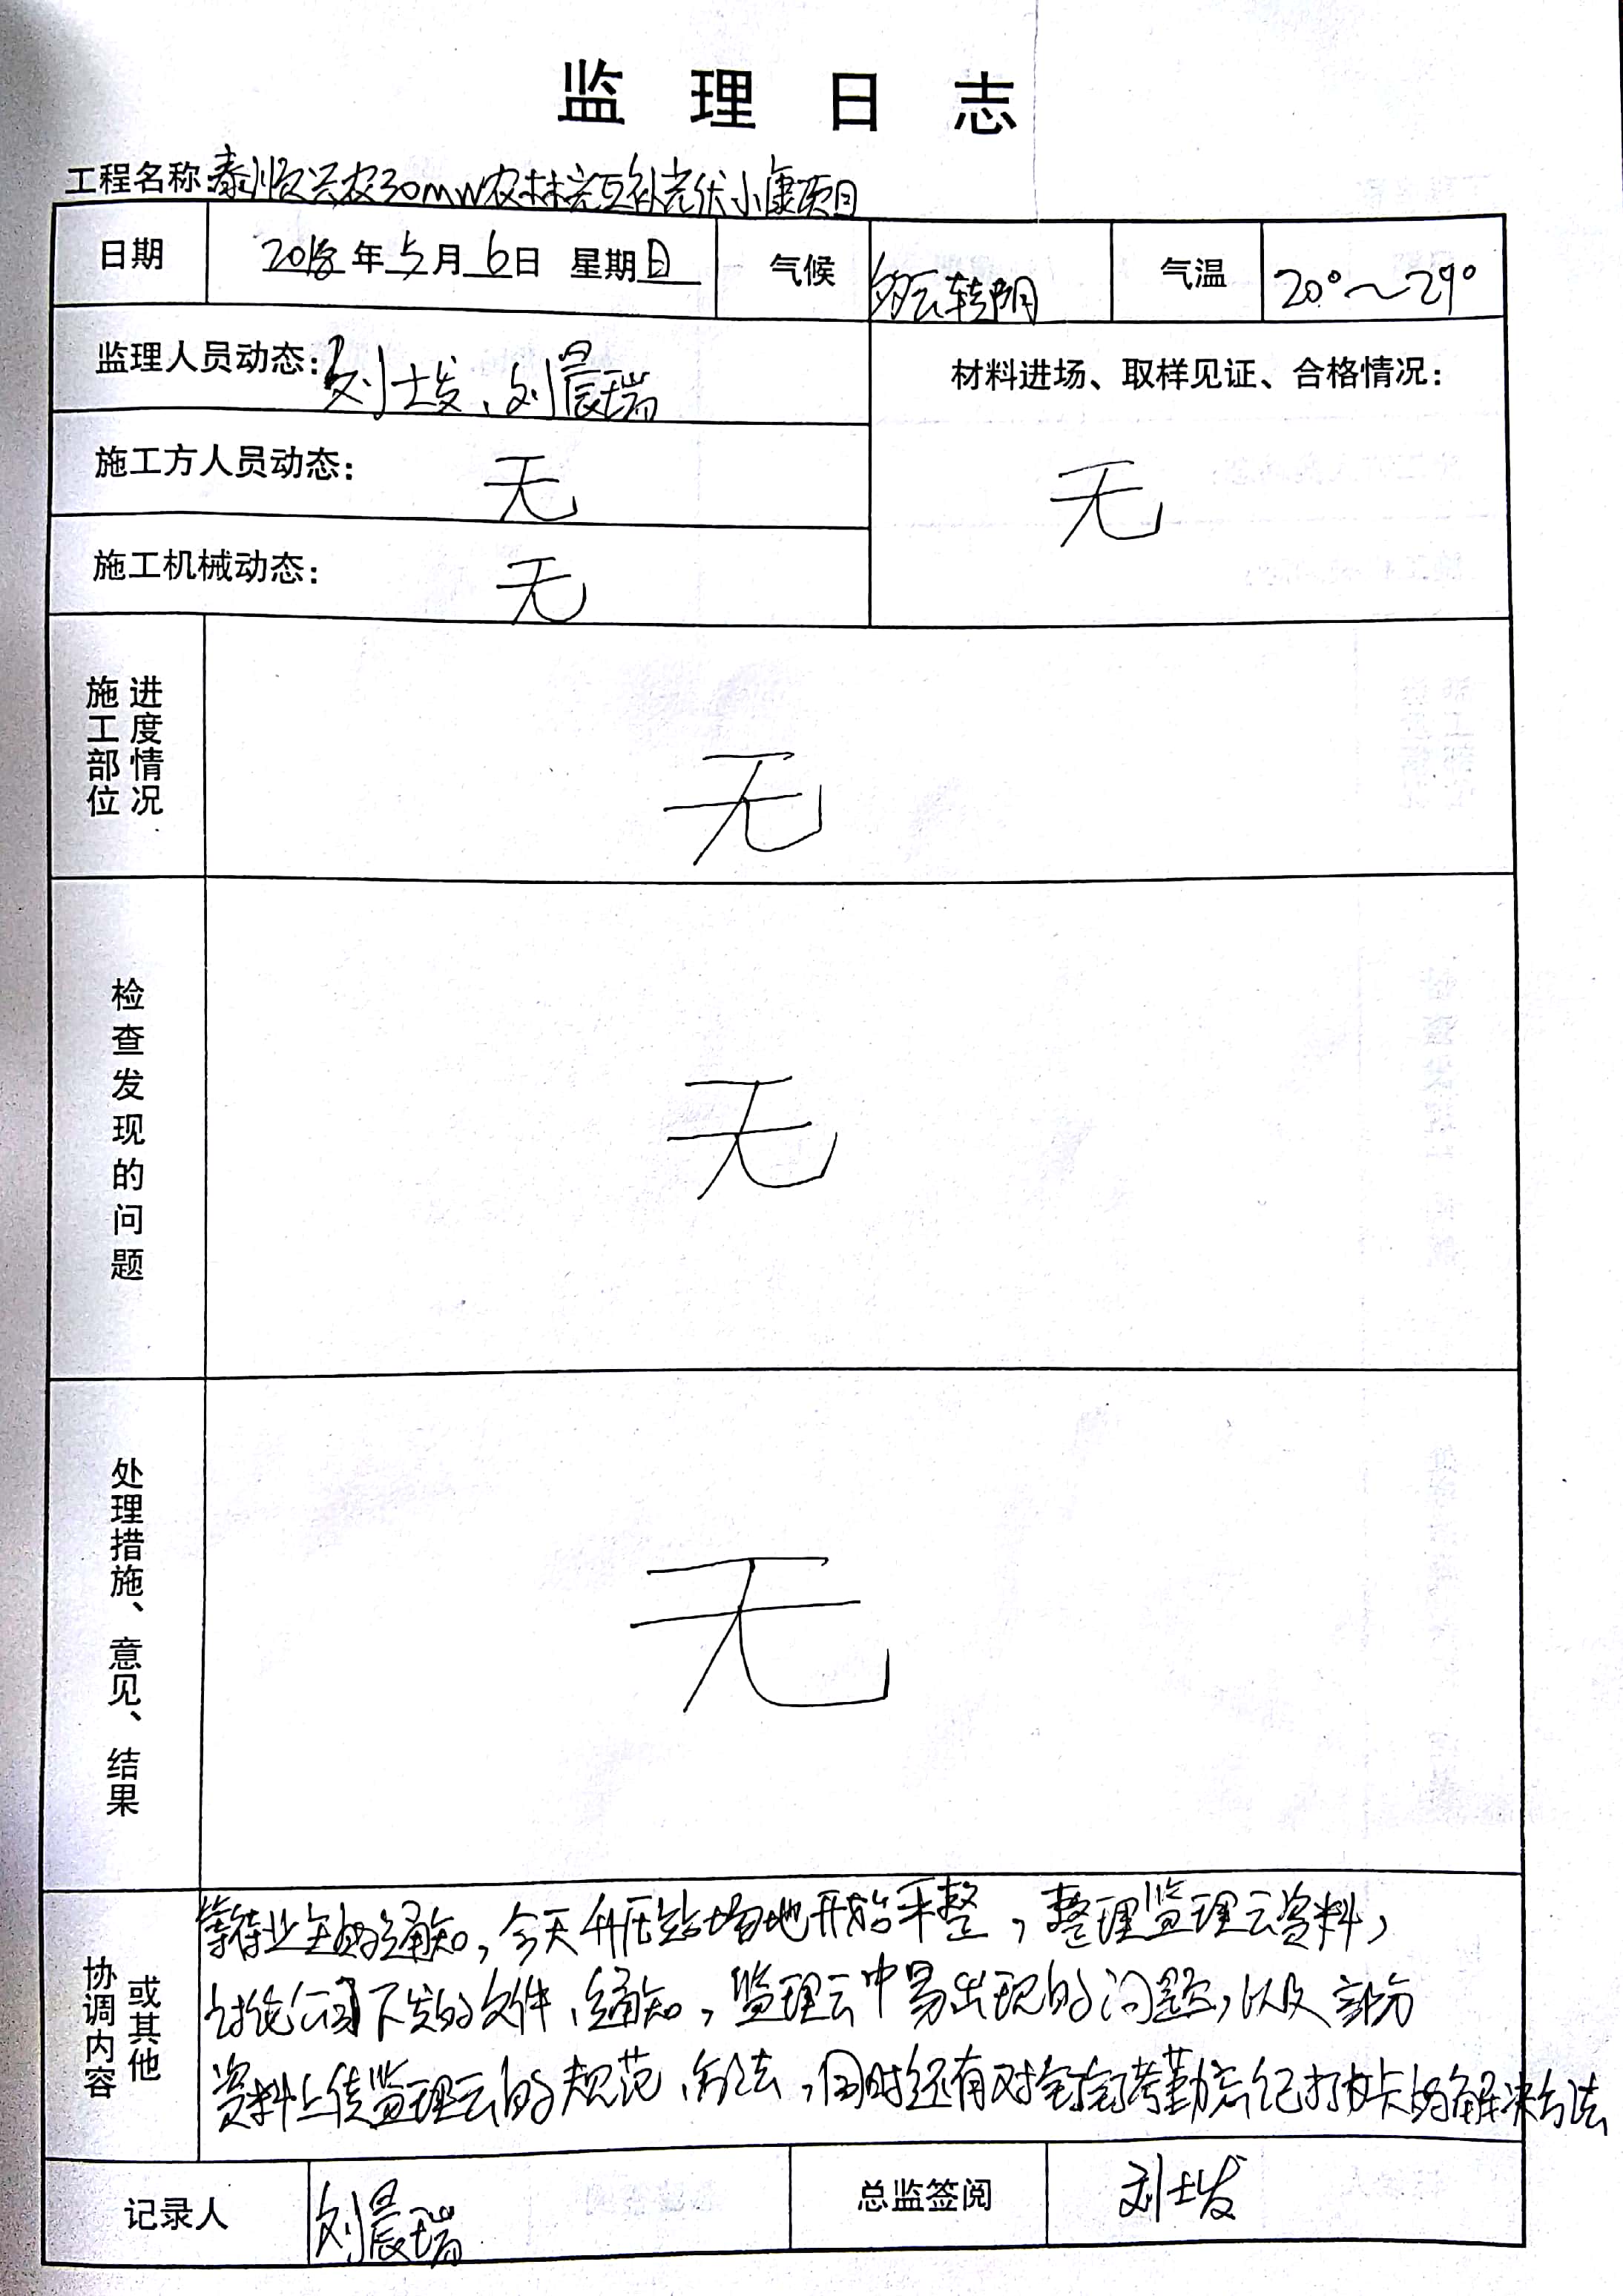 监理日志
工程名称:泰顺兴农30MW农林光互补光伏小康项目
日期 2018年5月6日 星期日 气候 多云转阴 气温 20°～29°
监理人员动态:刘士发、刘晨瑞
材料进场、取样见证、合格情况:
无
施工方人员动态: 无
施工机械动态: 无
施工部位
进度情况
无
检查发现的问题
无
处理措施、意见、结果
无
协调内容
或其他
等待业主的通知,今天升压站场地开始平整,整理监理云资料,
讨论公司下发的文件、通知,监理云中易出现的问题,以及部分
资料上传监理云的规范、方法,同时还有对钉钉考勤忘记打卡的解决方法
记录人 刘晨瑞 总监签阅 刘士发